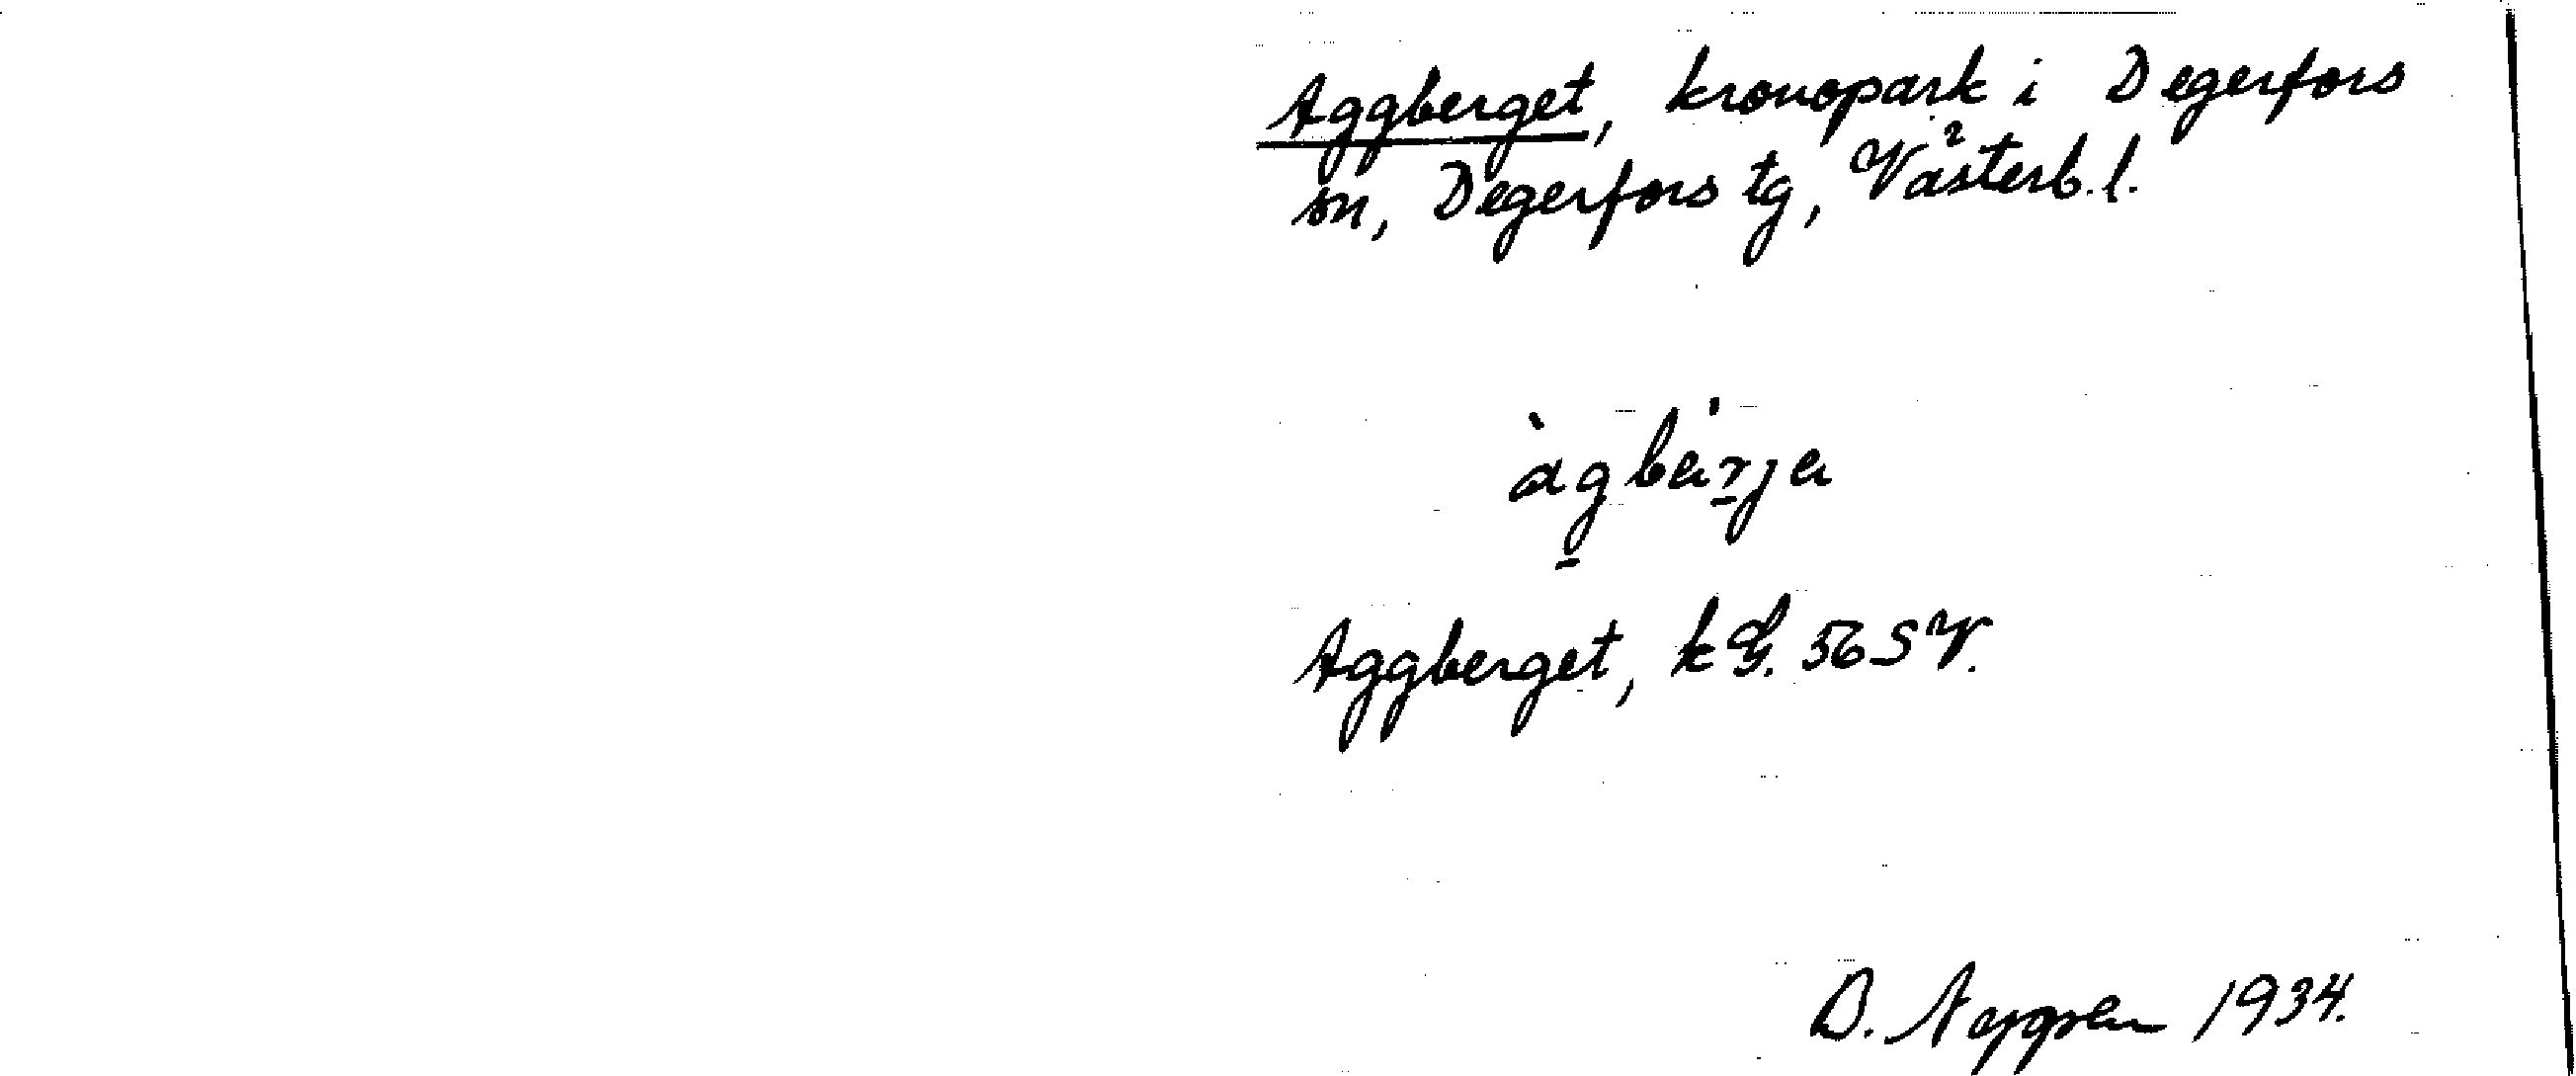 Aggberget, kronopark i Degerfors
sn, Degerfors tg, Västerb. l.
àgbàrja
Aggberget, k G. 56 SV.
D. 1934.